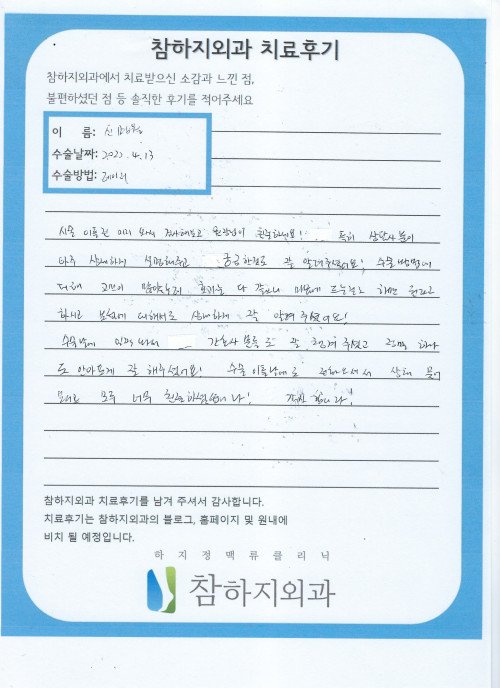 참하지외과 치료후기
참하지외과에서 치료받으신 소감과 느낀 점,
불편하셨던 점 등 솔직한 후기를 적어주세요
이 름:
수술날짜: 2022. 4. 13
수술방법: 레이저
수술 이틀전 미리 와서 검사해보고 원장님이 친절하네요! 특히 상담사분이
아주 상세하게 설명해주고 궁금한점도 잘 알려주셨어요! 수술방법에
대해 고민이 많았는데
하시고 보험에 대해서도 상세하게 잘 알려 주셨어요!
수술방에 간호사 분들도 잘 챙겨 주셨고
도 안아프게 잘 해주셨어요! 수술 이틀날에도 전화주셔서 상태 물어
모두 너무 친절하셨습니다! 감사합니다!
참하지외과 치료후기를 남겨 주셔서 감사합니다.
치료후기는 참하지외과의 블로그, 홈페이지 및 원내에
비치 될 예정입니다.
하지정맥류클리닉
참하지외과